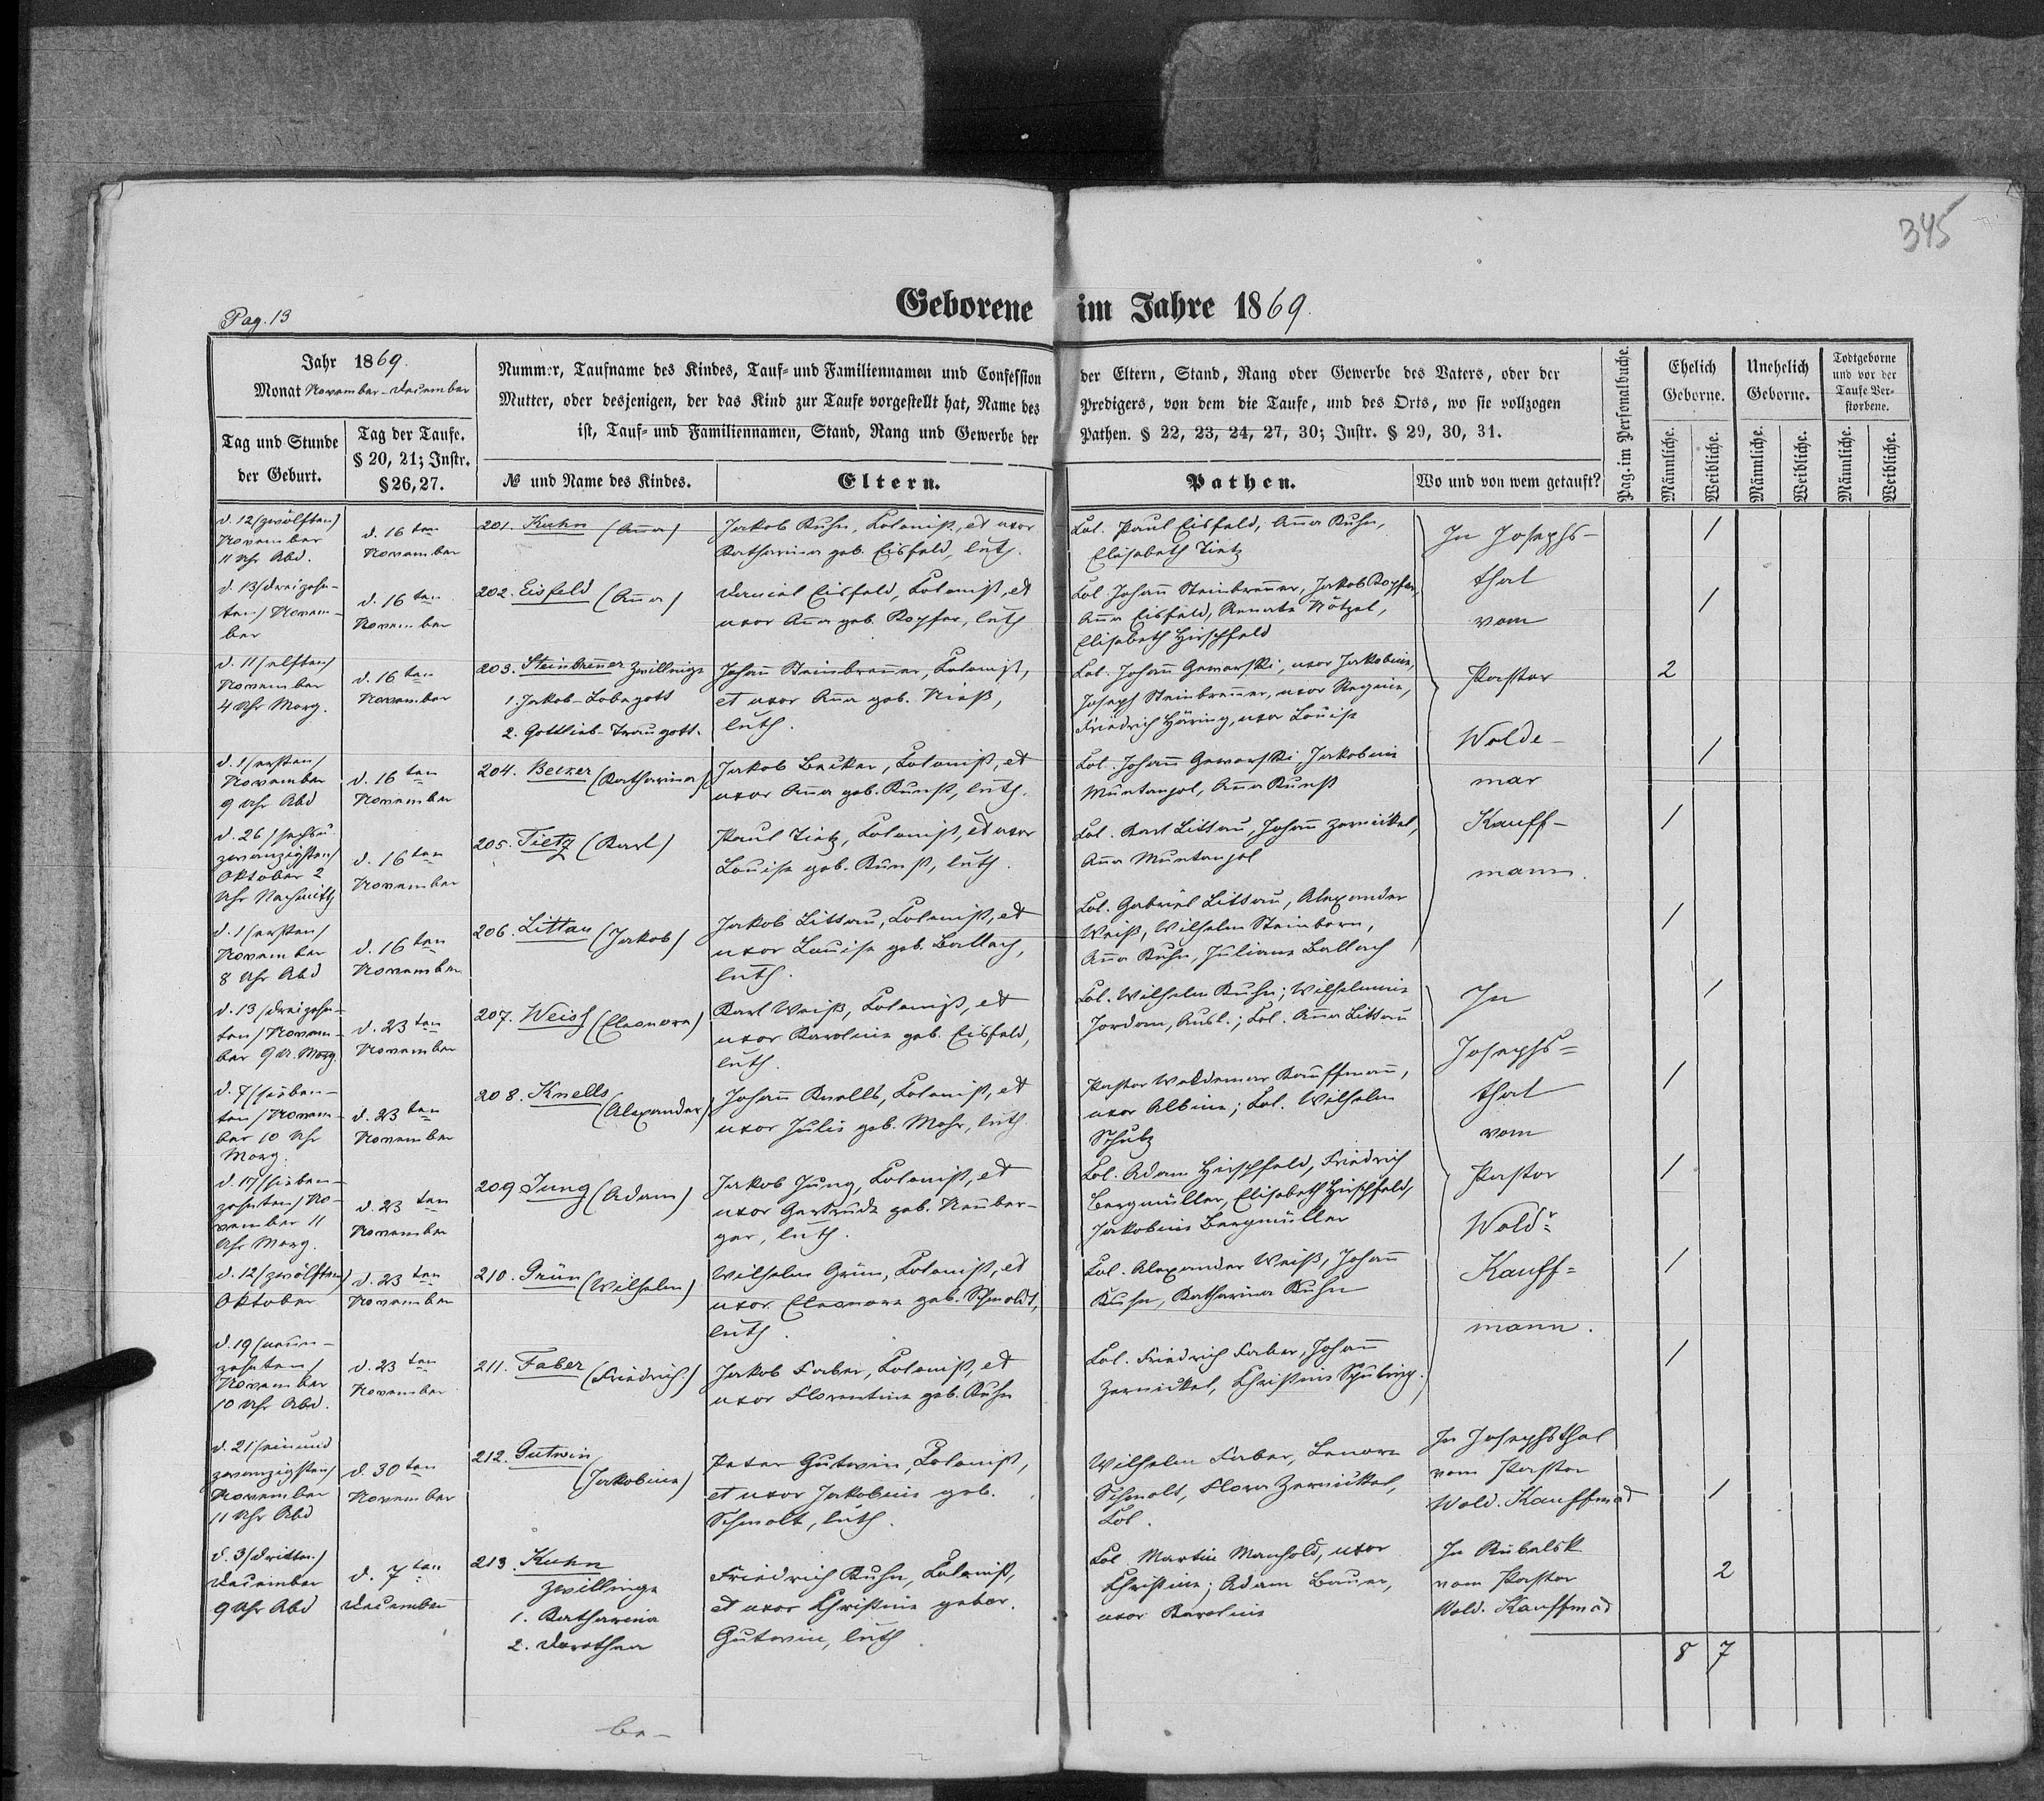 345
Pag. 13
Geborene im Jahre 1869.
Jahr 1869.
Monat November - December
Tag und Stunde
der Geburt.
Tag der Taufe.
§ 20, 21; Instr.
§ 26, 27.
Nummer, Taufname des Kindes, Tauf- und Familiennamen und Confession
Mutter, oder desjenigen, der das Kind zur Taufe vorgestellt hat, Name des
ist, Tauf- und Familiennamen, Stand, Rang und Gewerbe der
№ und Name des Kindes.
Eltern.
der Eltern, Stand, Rang oder Gewerbe des Vaters, oder der
Predigers, von dem die Taufe, und des Orts, wo sie vollzogen
Pathen. § 22, 23, 24, 27, 30; Instr. § 29, 30, 31.
Pathen.
Wo und von wem getauft?
Pag. im Personalbuche.
Ehelich
Geborne.
Unehelich
Geborne.
Todtgeborne
und vor der
Taufe Ver-
storbene.
Männliche.
Weibliche.
Männliche.
Weibliche.
Männliche.
Weibliche.
d. 12 (zwölften)
November
11 Uhr Abd.
d. 16 ten
November
201. Kuhn (Anna)
Jakob Kuhn, Kolonist, et uxor
Katharina geb. Eisfeld, luth.
Kol. Paul Eisfeld, Anna Kuhn,
Elisabeth Tietz
1
d. 13 (dreizehn-
ten) Novem-
ber
d. 16 ten
November
202. Eisfeld (Anna)
Daniel Eisfeld, Kolonist, et
uxor Anna geb. Kopfer, luth
Kol. Johann Steinbrenner, Jakob Kopfer,
Anna Eisfeld, Renate Nötzel,
Elisabeth Hirschfeld
1
d. 11 (elften)
November
4 Uhr Morg.
d. 16 ten
November
203. Steinbrenner Zwillinge
1. Jakob-Lobegott
2. Gottlieb-Traugott.
Johann Steinbrenner, Kolonist,
et uxor Anna geb. Nieß,
luth.
Kol. Johann Gworski, uxor Jakobine,
Joseph Steinbrenner, uxor Regine,
Friedrich Häring, uxor Louise
2
d. 1 (ersten)
November
9 Uhr Abd
d. 16 ten
November
204. Becker (Katharina)
Jakob Becker, Kolonist, et
uxor Anna geb. Kunst, luth.
Kol. Johann Gworski Jakobine
Muntanjol, Anna Kunst
1
d. 26 (sechsu.
zwanzigsten)
Oktober 2
Uhr Nachmittg
d. 16 ten
November
205. Tietz (Karl)
Paul Tietz, Kolonist, et uxor
Louise geb. Kunst, luth.
Kol. Karl Littau, Johann Zernickel,
Anna Muntanjol
1
d. 1 (ersten)
November
8 Uhr Abd
d. 16 ten
November
206. Littau (Jakob)
Jakob Littau, Kolonist, et
uxor Louise geb. Ballach,
luth.
Kol. Gabriel Littau, Alexander
Weiß, Wilhelm Steinborn,
Anna Kuhn, Juliane Ballach
1
In Josephs-
thal
vom
Pastor
Wolde-
mar
Kauff-
mann.
d. 13 (dreizehn-
ten) Novem-
ber 9 U. Morg.
d. 23 ten
November
207. Weiss (Eleonore)
Karl Weiß, Kolonist, et
uxor Karoline geb. Eisfeld,
luth.
Kol. Wilhelm Kuhn; Wilhelmine
Jordan, Ausl.; Kol. Anna Littau
1
d. 7 (sieben-
ten) Novem-
ber 10 Uhr
Morg.
d. 23 ten
November
208. Knells
(Alexander)
Johann Knells, Kolonist, et
uxor Julie geb. Mohr, luth.
Pastor Woldemar Kauffmann,
uxor Albine; Kol. Wilhelm
Schutz
1
d. 17 (sieben-
zehnten) No-
vember 11
Uhr Morg.
d. 23 ten
November
209 Jung (Adam)
Jakob Jung, Kolonist, et
uxor Gertrude geb. Neuber-
ger, luth.
Kol. Adam Hirschfeld, Friedrich
Bergmüller, Elisabeth Hirschfeld,
Jakobine Bergmüller
1
d. 12 (zwölften)
Oktober
d. 23 ten
November
210. Grün (Wilhelm)
Wilhelm Grün, Kolonist, et
uxor Eleonore geb. Schmoldt,
luth.
Kol. Alexander Weiß, Johann
Kuhn, Katharina Kuhn
1
d. 19 (neun-
zehnten)
November
10 Uhr Abd.
d. 23 ten
November
211. Faber (Friedrich)
Jakob Faber, Kolonist, et
uxor Florentine geb. Kuhn
Kol. Friedrich Faber, Johann
Zernickel, Christine Schuling.
1
In
Josephs=
thal
vom
Pastor
Wold r
Kauff=
mann.
d. 21 (einund
zwanzigsten)
November
11 Uhr Abd
d. 30 ten
November
212. Gutwin
(Jakobine)
Peter Gutwin, Kolonist,
et uxor Jakobine geb.
Schmolt, luth.
Wilhelm Faber, Lenore
Schmolt, Flora Zernickel,
Kol.
In Josephsthal
vom Pastor
Wold. Kauffman
1
d. 3 (dritten)
December
9 Uhr Abd
d. 7 ten
December
213. Kuhn
Zwillinge
1. Katharina
2. Dorothea
Friedrich Kuhn, Kolonist,
et uxor Christine gebor.
Gutwin, luth
Kol. Martin Manhold, uxor
Christine; Adam Bauer,
uxor Karoline
In Ribalsk
vom Pastor
Wold. Kauffman
2
8 7